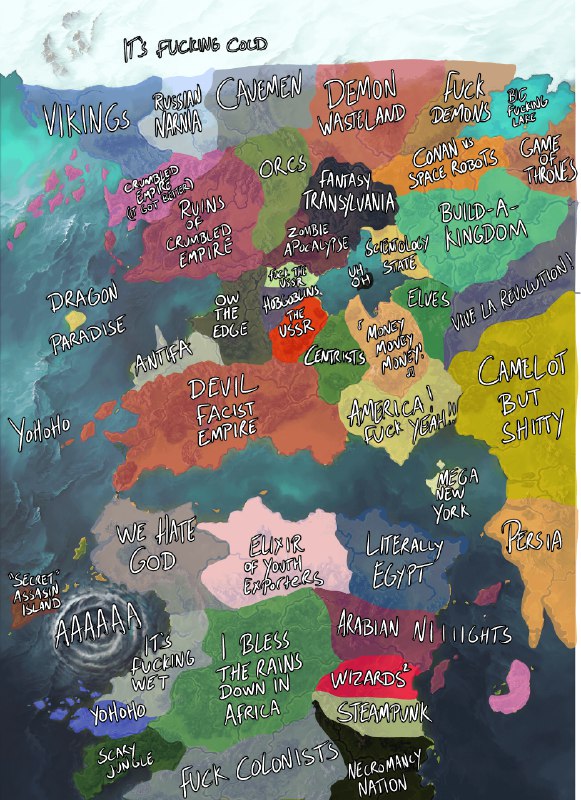 IT'S FUCKING COLD
VIKINGS
RUSSIAN
NARNIA
CAVEMEN
DEMON
WASTELAND
FUCK
DEMONS
BIG
FUCKING
LAKE
CRUMBLED
EMPIRE
(IT GOT BETTER)
RUINS
OF
CRUMBLED
EMPIRE
ORCS
FANTASY
TRANSYLVANIA
CONAN VS
SPACE ROBOTS
GAME
OF
THRONES
ZOMBIE
APOCALYPSE
SCIENTOLOGY
STATE
BUILD-A-
KINGDOM
DRAGON
PARADISE
OW
THE
EDGE
FUCK THE
USSR
HOBGOBLINS
THE
USSR
UH
OH
ELVES
VIVE LA REVOLUTION!
ANTIFA
CENTRISTS
MONEY
MONEY
MONEY!
DEVIL
FACIST
EMPIRE
AMERICA!
FUCK YEAH!!!
CAMELOT
BUT
SHITTY
YOHOHO
MEGA
NEW
YORK
WE HATE
GOD
ELIXIR
OF YOUTH
EXPORTERS
LITERALLY
EGYPT
PERSIA
"SECRET"
ASSASIN
ISLAND
AAAAAA
IT'S
FUCKING
WET
I BLESS
THE RAINS
DOWN IN
AFRICA
ARABIAN NIIIIGHTS
WIZARDS²
STEAMPUNK
YOHOHO
SCARY
JUNGLE
FUCK COLONISTS
NECROMANCY
NATION